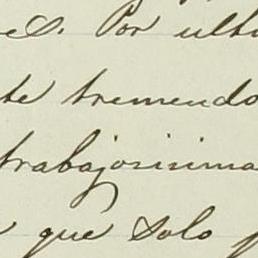 Por ult
te tremendo
trabajosisima
que solo